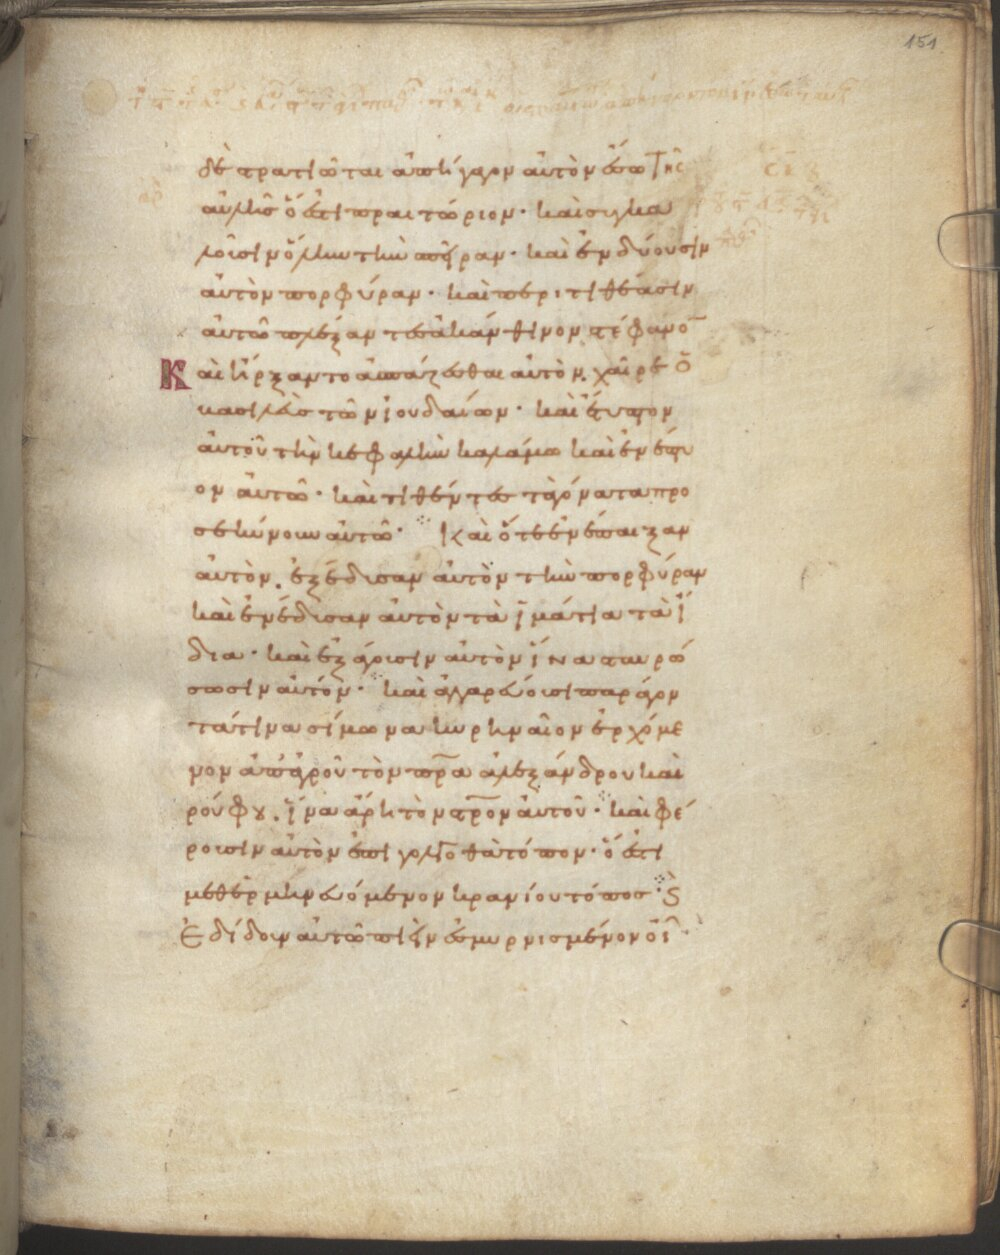 151
δὲ στρατιῶται ἀπήγαγον αὐτὸν ἔσω τῆς
αὐλῆς ὅ ἐστι πραιτώριον· καὶ συγκα
λοῦσιν ὅλην τὴν σπεῖραν· καὶ ἐνδύουσιν
αὐτὸν πορφύραν· καὶ περιτιθέασιν
αὐτῶ πλέξαντες ἀκάνθινον στέφανο̅
Καὶ ἤρξαντο ἀσπάζεσθαι αὐτὸν. χαῖρε ὁ
βασιλεὺς τῶν ἰουδαίων· καὶ ἔτυπτον
αὐτοῦ τὴν κεφαλὴν καλάμω καὶ ἐνέπτυ
ον αὐτῶ· καὶ τιθέντες τὰ γόνατα προ
σεκύνουν αὐτῶ· Καὶ ὅτε ἐνέπαιξαν
αὐτὸν. ἐξέδυσαν αὐτὸν τὴν πορφύραν
καὶ ἐνέδυσαν αὐτὸν τὰ ἱμάτια τὰ ἴ
δια· καὶ ἐξάγουσιν αὐτὸν ἵνα σταυρώ
σωσιν αὐτόν· καὶ ἀγγαρεύουσι παράγον
τά τινα σίμωνα κυρηναῖον ἐρχόμε
νον ἀπ' ἀγροῦ τὸν πρ̅α ἀλεξάνδρου καὶ
ρούφου. ἵνα ἄρη τὸν στρ̅ον αὐτοῦ· καὶ φέ
ρουσιν αὐτὸν ἐπὶ γολγοθὰ τόπον· ὅ ἐστι
μεθερμηνευόμενον κρανίου τόπος· ϗ
ἐδίδουν αὐτῶ πιεῖν ἐσμυρνισμένον οἶ